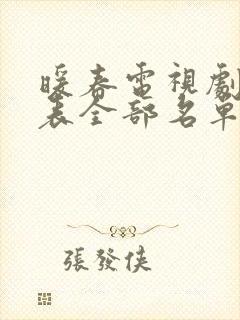 暖春電視劇
表全部名單
張發俠